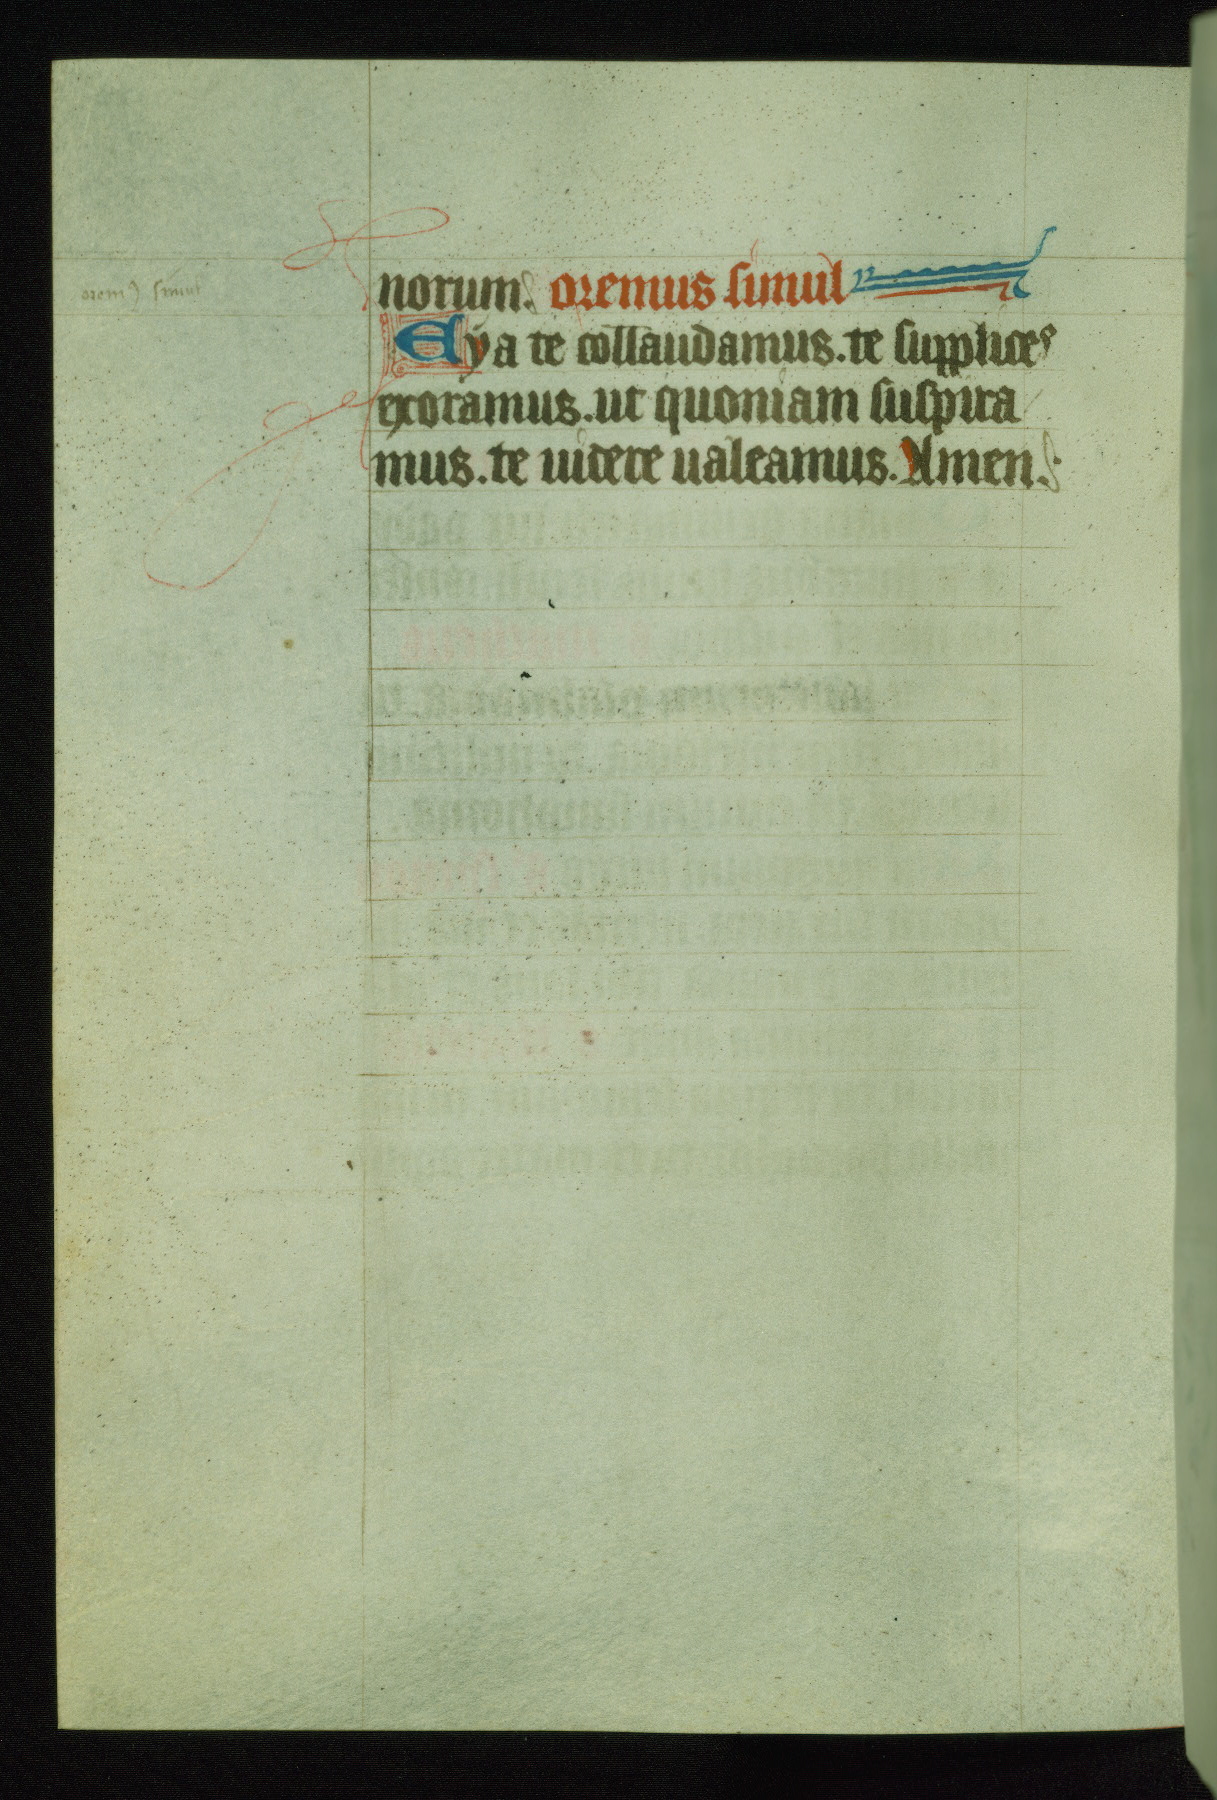 orem9 simul
norum. oremus simul
Eya te collaudamus. te supplices
exoramus. ut quoniam suspira
mus. te videre ualeamus. Amen.